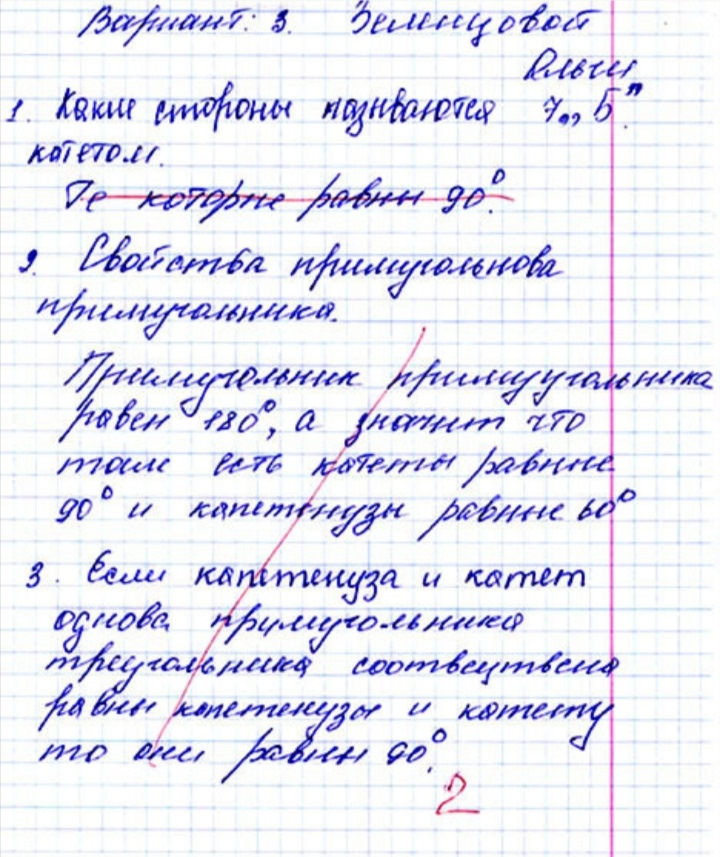 Вариант: 3. Зеленцовой
Ольги
1. Какие стороны называются 7 „Б”.
катетом.
Те которые равны 90°.
2. Свойства примугольнова
примугольника.
Примугольник примуугольника
равен 180°, а значит что
там есть катеты равные
90° и капетенузы равные 60°
3. Если капетенуза и катет
однова примугольника
треугольника соотвецтвена
равны капетенузы и катету
то они равны 90°.
2